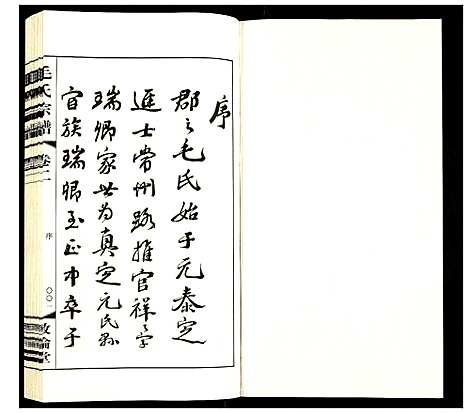 序
郡之毛氏始于元泰定
進士常州路推官祥祥字
瑞卿家世为真定元氏縣
官族瑞卿至正中卒于
毛氏宗譜
卷二
序
〇〇一
敦倫堂